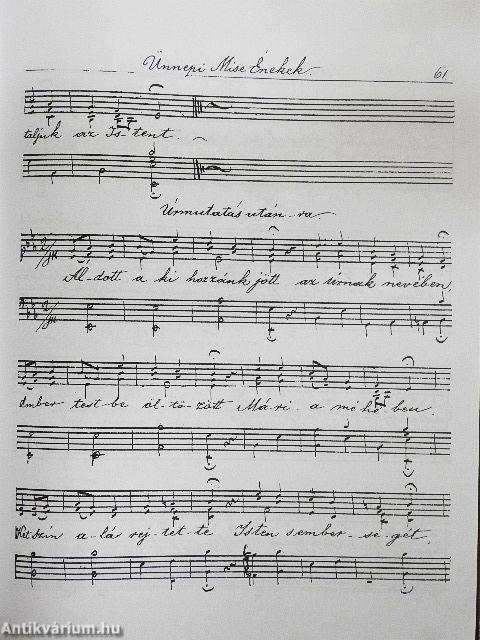 Ünnepi Mise Énekek. 61
taljuk az Is-tent.
Úrmutatás után-ra
Ál-dott a ki hozzánk jött az úrnak nevében,
Ember test-be öl-tö-zött Má-ri-a méhé ben.
Két szín a-lá rej-tet-te Isten s ember-sé-gét,
Antikvárium.hu